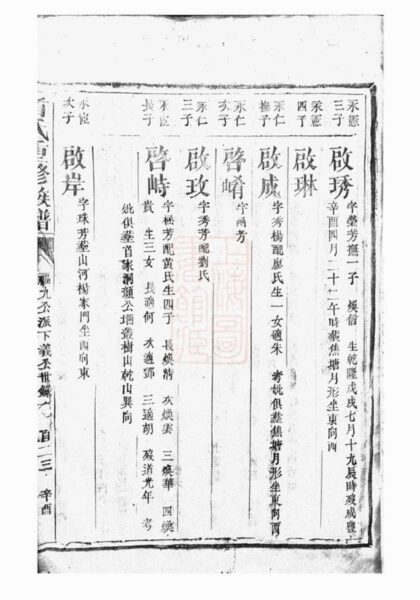 永憲
三子
啟琇
字瑩芳撫一子 煥信 生乾隆戊戌七月十九辰時歿咸豐
辛酉四月二十二午時葬焦塘月形坐東向西
永憲
四子
啟琳
永仁
撫子
啟成
字秀楊配盧氏生一女適朱 考妣俱葬焦塘月形坐東向酉
永仁
次子
啓崤
字尚芳
永仁
三子
啟玫
字秀芳配劉氏
長子
啓峙
字松芳配黃氏生四子 長煥清 次煥雲 三煥華 四煥
貴 生三女 長適何 次適鄧 三適胡 歿道光年 考
妣俱葬首家洞 公壋叢樹山乾山巽向
次子
啟岸
字珠芳葬山河楊家門坐西向東
氏重修族譜
九公派下義公世錄
百二三
辛酉